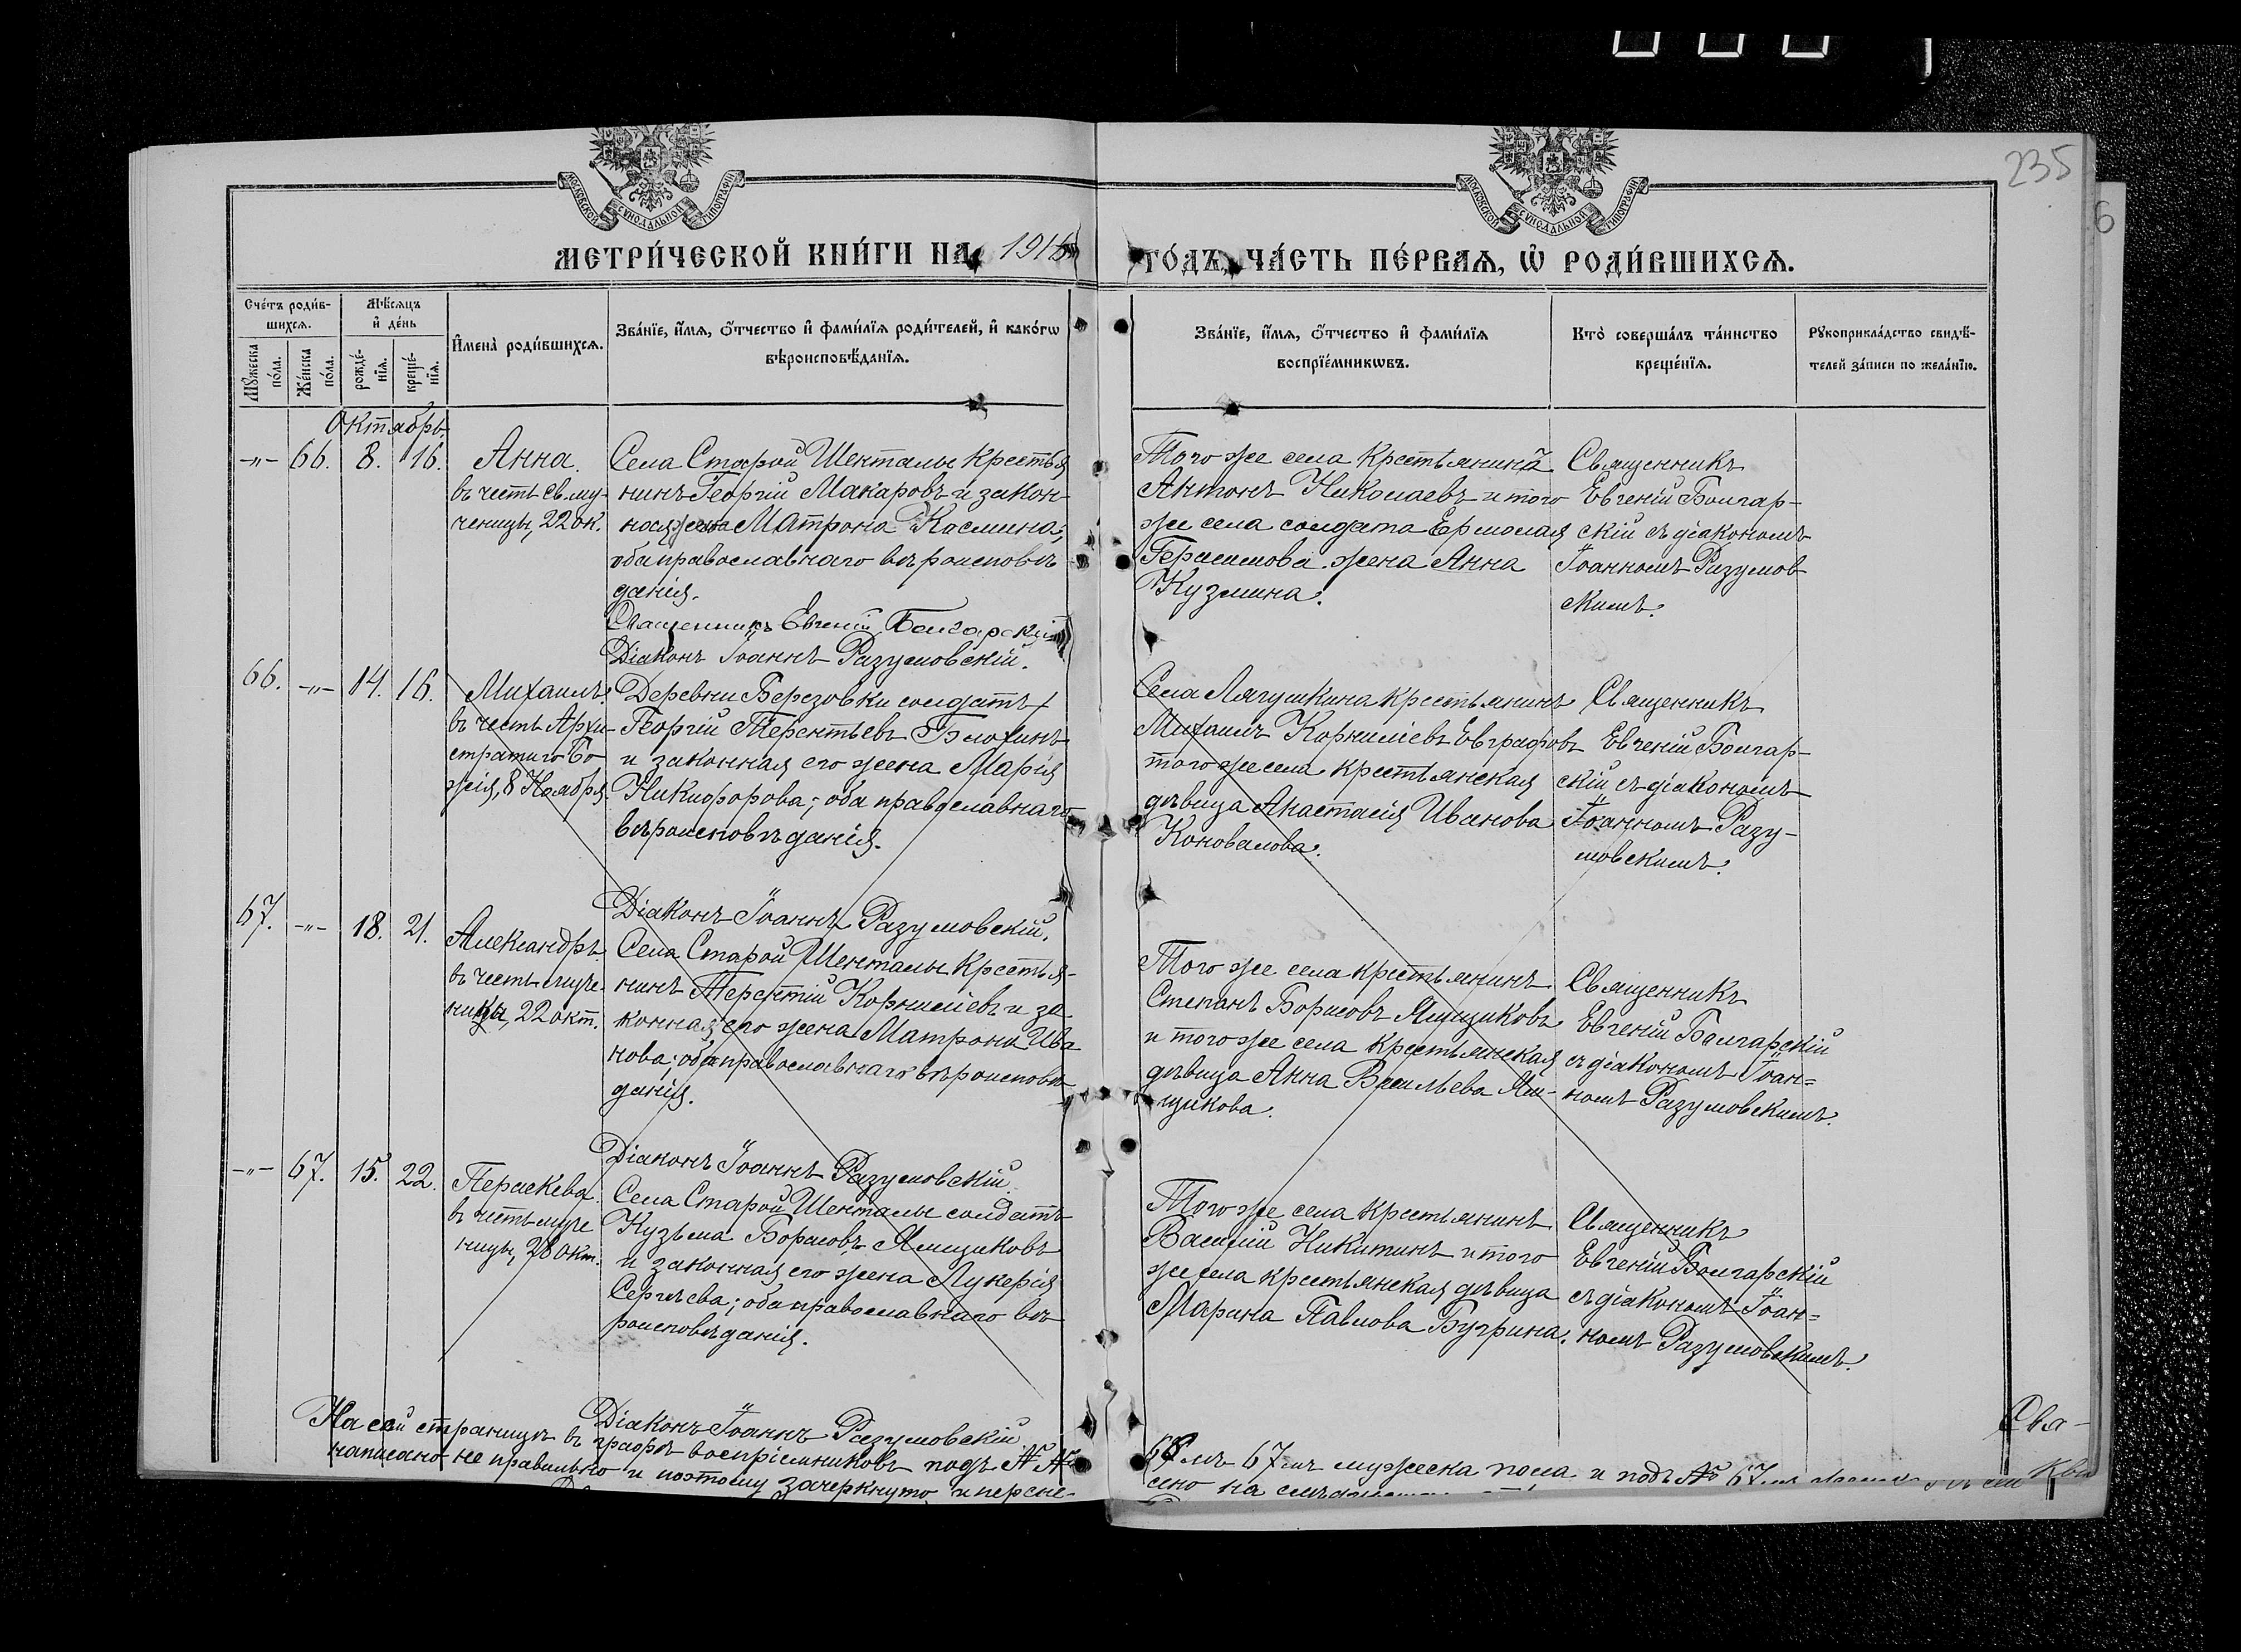 235
6
МОСКОВСКОЙ СУНОДАЛЬНОЙ ТИПОГРАФІИ
МОСКОВСКОЙ СУНОДАЛЬНОЙ ТИПОГРАФІИ
МЕТРИ́ЧЕСКОЙ КНИ́ГИ НА 1916
ГО́ДЪ, ЧА́СТЬ ПЕ́РВАѦ, Ѡ҆ РОДИ́ВШИХСѦ.
Сче́тъ роди́в-
шихсѧ.
Мѣ́сѧцъ
и҆ де́нь
Мꙋ́жеска
по́ла.
Же́нска
по́ла.
рожде́-
нїѧ.
креще́-
нїѧ.
И҆мена̀ роди́вшихсѧ.
Зва́нїе, и҆́мѧ, ѻ҆́тчество и҆ фами́лїѧ роди́телей, и҆ како́гѡ
вѣроисповѣ́данїѧ.
Зва́нїе, и҆́мѧ, ѻ҆́тчество и҆ фами́лїѧ
воспрїе́мникѡвъ.
Кто̀ соверша́лъ та́инство
креще́нїѧ.
Рꙋкоприкла́дство свидѣ́-
телей за́писи по жела́нїю.
Октябрь.
-„- 66. 8. 16.
Анна.
въ честь св. му-
ченицы, 22 ок.
Села Старой Шенталы крестья
нинъ Георгій Макаровъ и закон-
ная жена Матрона Космина;
оба православнаго вѣроисповѣ
данія.
Священникъ Евгеній Болгарскій
Діаконъ Іоаннъ Разумовскій.
Того же села крестьянинъ
Антонъ Николаевъ и того
же села солдата Ермолая
Герасимова жена Анна
Кузмина.
Священникъ
Евгеній Болгар-
скій съ діакономъ
Іоанномъ Разумов
скимъ.
66. -„- 14. 16.
Михаилъ.
въ честь Архи-
стратига Бо
жія, 8 Ноября.
Деревни Березовки солдатъ
Георгій Терентьевъ Блохинъ
и законная его жена Марія
Никифорова; оба православнаго
вѣроисповѣданія.
Діаконъ Іоаннъ Разумовскій.
Села Лягушкина крестьянинъ
Михаилъ Корниліевъ Евграфовъ
того же села крестьянская
дѣвица Анастасія Иванова
Коновалова.
Священникъ
Евгеній Болгар-
скій съ діакономъ
Іоанномъ Разу-
мовскимъ.
67. -„- 18. 21.
Александръ
въ честь муче-
ника, 22 окт.
Села Старой Шенталы крестья-
нинъ Терентій Корниліевъ и за
конная его жена Матрона Ива
нова; оба православнаго вѣроисповѣ
данія.
Діаконъ Іоаннъ Разумовскій
Того же села крестьянинъ
Степанъ Борисовъ Ямщиковъ
и того же села крестьянская
дѣвица Анна Васильева Ям-
щикова.
Священникъ
Евгеній Болгарскій
съ діакономъ Іоан=
номъ Разумовскимъ.
-„- 67. 15. 22.
Параскева
въ честь муче
ницы, 28 окт.
Села Старой Шенталы солдатъ
Кузьма Борисовъ Ямщиковъ
и законная его жена Лукерія
Сергѣева; оба православнаго вѣ
роисповѣданія.
Діаконъ Іоаннъ Разумовскій
Того же села крестьянинъ
Василій Никитинъ и того
же села крестьянская дѣвица
Марина Павлова Бугрина.
Священникъ
Евгеній Болгарскій
съ діакономъ Іоан=
номъ Разумовскимъ.
Свя-
На сей страницѣ въ графѣ воспріемниковъ подъ №№ 66 мъ 67 мъ мужеска пола и подъ № 67 мъ
написано не правильно и поэтому зачеркнуто и перене- сено на